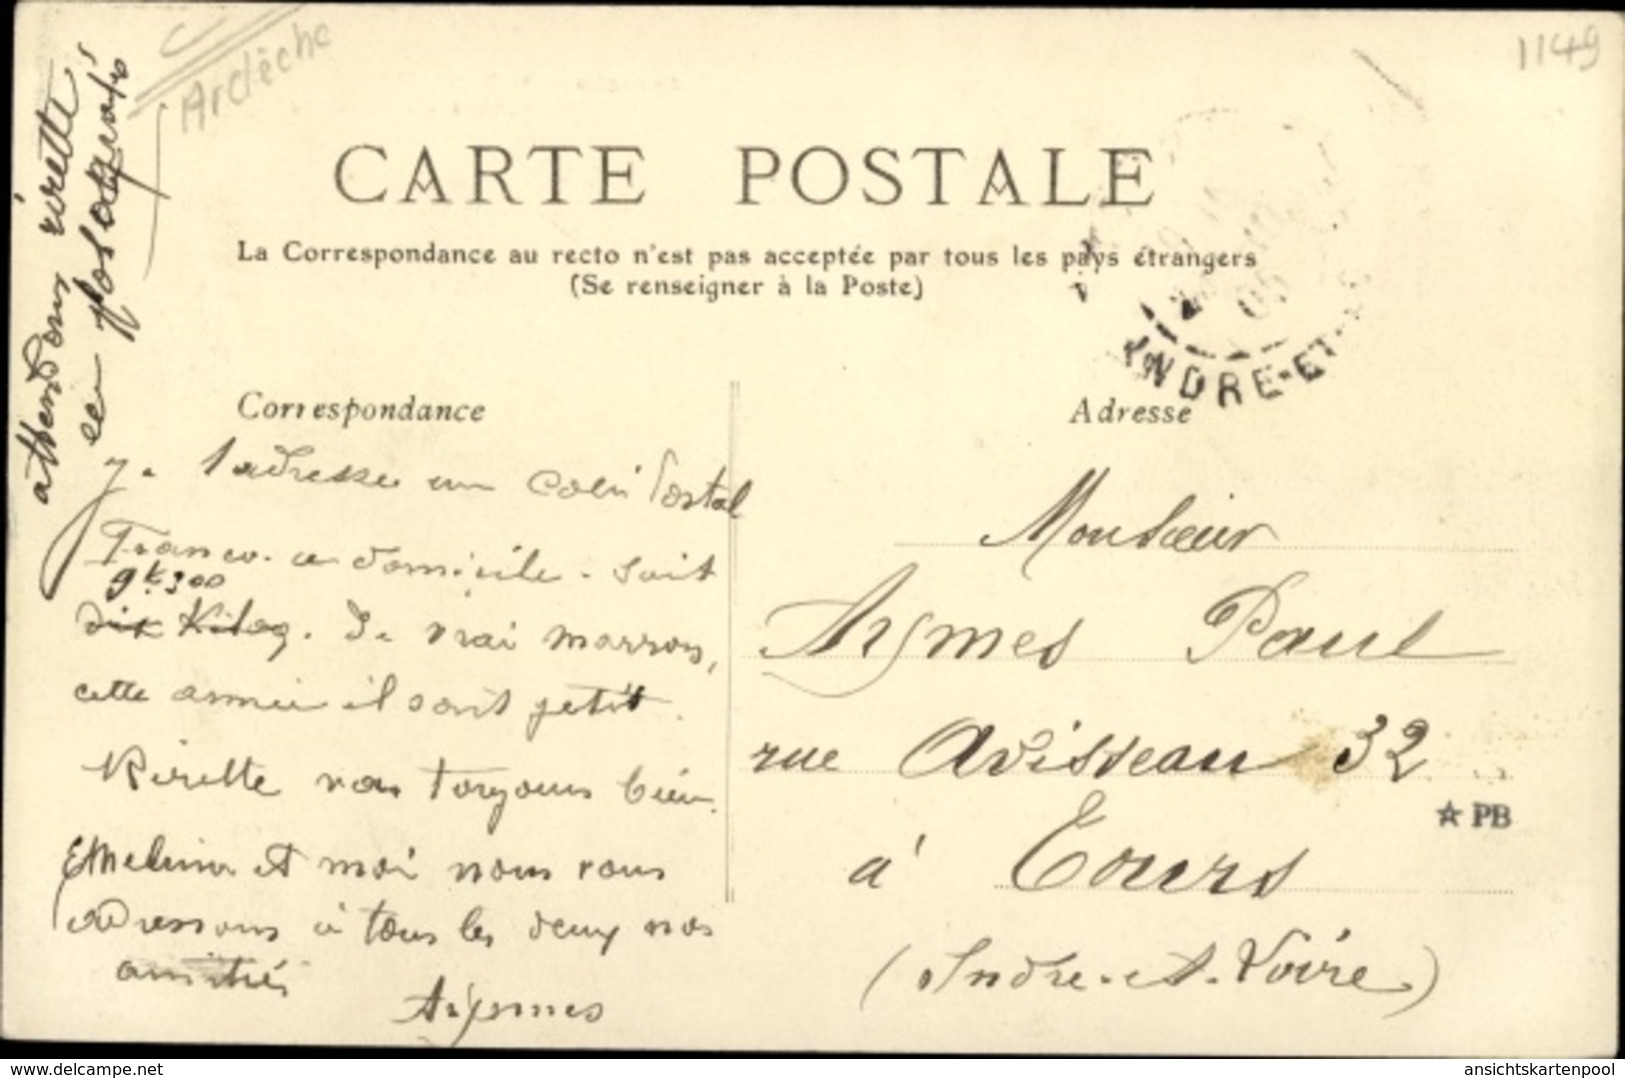 Ardèche
1149
CARTE POSTALE
La Correspondance au recto n'est pas acceptée par tous les pays étrangers
(Se renseigner à la Poste)
INDRE-ET-
05
Correspondance
Adresse
attendons
Je t'adresse un Colis Postal
Franco. a domicile. soit
9k.300
dix Kilog. De vrai marrons,
cette année il sont petit.
Rirette va toujours bien.
Emelina et moi nous vous
adressons à tous les deux nos
amitiés
Aymes
Monsieur
Aymes Paul
rue Avisseau 32
☆ PB
à Tours
(Indre-et-Loire)
delcampe.net
ansichtskartenpool